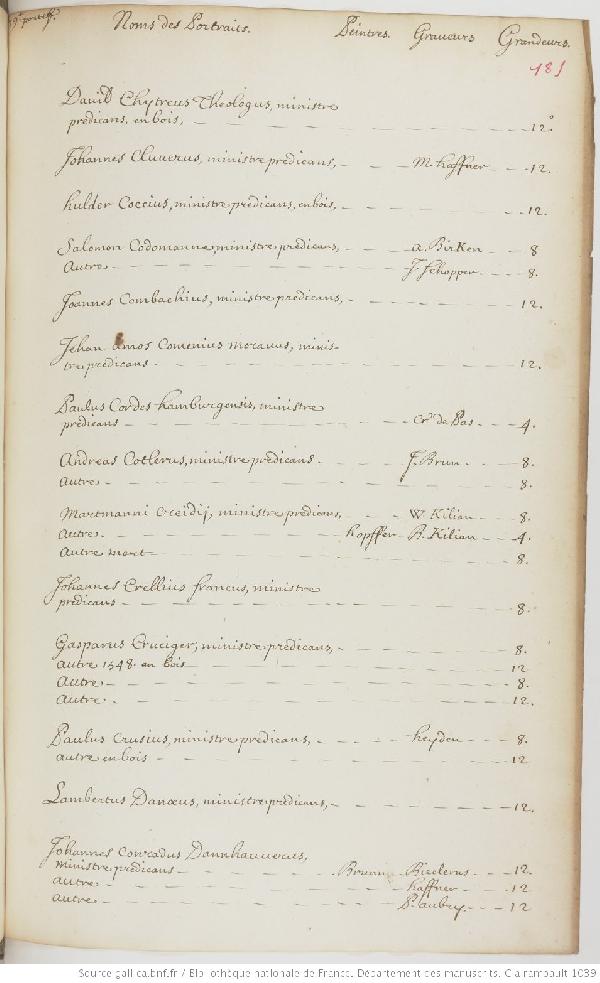 9e portef.
Noms des Portraits. Peintres. Graveurs Grandeurs.
181
David Chytreus Theologus, ministre
predicans, en bois, 12°
Johannes Cluverus, ministre predicans, M. haffner 12.
hulder Coccius, ministre predicans, en bois, 12.
Salomon Codomanne, ministre predicans, a. BirKen 8
Autre J. Schopper 8.
Joannes Combachius, ministre predicans, 12.
Jehan Amos Comenius moravus, minis-
tre predicans 12.
Paulus Cordes hamburgensis, ministre
predicans Cr. de Pas 4.
Andreas Cotlerus, ministre predicans J. Brun 8.
Autre 8.
Martmanni Creidij, ministre predicans, W. Kilian 8.
Autre hopffer A. Kilian 4.
Autre mort 8.
Johannes Crellius francus, ministre
predicans 8.
Gasparus Cruciger, ministre predicans, 8.
autre 1548. en bois 12
Autre 8.
Autre 12.
Paulus Crusius, ministre predicans, heyden 8.
autre en bois 12
Lambertus Danæus, ministre predicans, 12.
Johannes Conradus Dannhauverus,
ministre predicans Brunn 12.
Autre haffner 12
Autre P. aubry 12
Source gallica.bnf.fr / Bibliothèque nationale de France. Département des manuscrits. Clairambault 1039